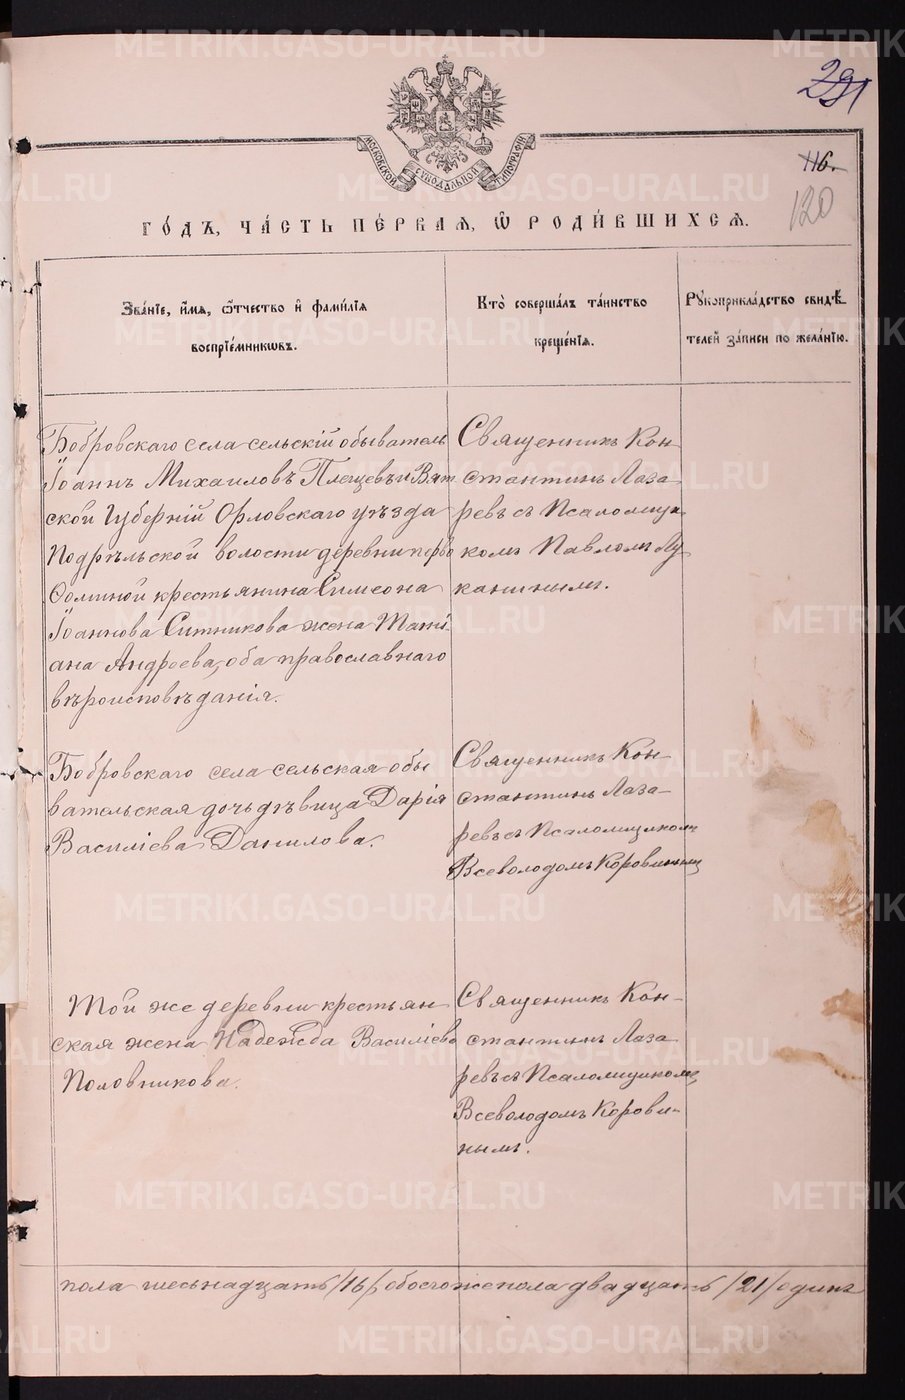 METRIKI.GASO-URAL.RU
291
116.
120
МОСКОВСКОЙ СѴНОДАЛЬНОЙ ТИПОГРАФІИ
ГО́ДЪ, ЧА́СТЬ ПЕ́РВАЯ, Ѽ РОДИ́ВШИХСЯ.
Зва́нїе, и҆́мѧ, ѻ҆́тчество и҆ фами́лїѧ
воспрїе́мникѡвъ.
Кто̀ соверша́лъ та́инство
креще́нїѧ.
Рꙋкоприкла́дство свидѣ́-
телей за́писи по жела́нїю.
Бобровскаго села сельскій обыватель
Іоаннъ Михаиловъ Плещевъ и Вят
ской Губерній Орловскаго уѣзда
Подрѣльской волости деревни перво
Фоминой крестьянина Симеона
Іоаннова Ситникова жена Таті
ана Андреева, оба православнаго
вѣроисповѣданія.
Священникъ Кон-
стантинъ Лаза
ревъ съ Псаломщи
комъ Павломъ Лу
канинымъ.
Бобровскаго села сельская обы
вательская дочь дѣвица Дарія
Василіева Данилова.
Священникъ Кон-
стантинъ Лаза-
ревъ съ Псаломщикомъ
Всеволодомъ Коровинымъ
Той же деревни крестьян
ская жена Надежда Василіева
Половникова.
Священникъ Кон-
стантинъ Лаза
ревъ съ Псаломщикомъ
Всеволодомъ Корови-
нымъ.
пола шестьнадцать /16/, обоего же пола двадцать /21/ одинъ